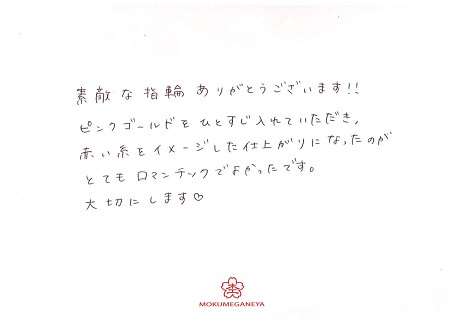 素敵な指輪ありがとうございます!!
ピンクゴールドをひとすじ入れていただき、
赤い糸をイメージした仕上がりになったのが
とてもロマンチックでよかったです。
大切にします♡
MOKUMEGANEYA